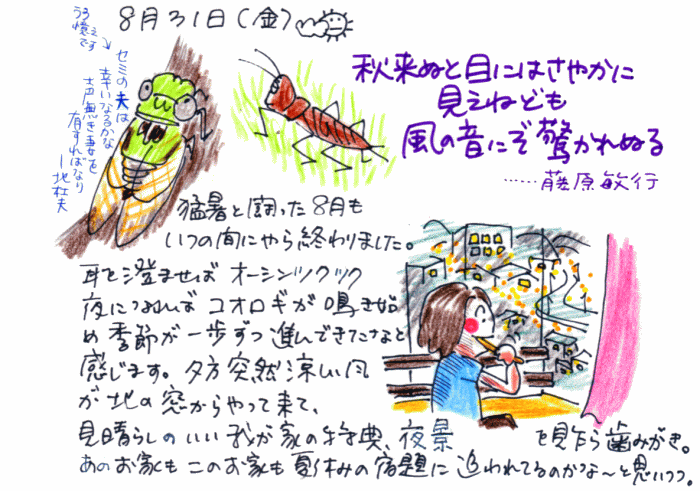 8月31日(金)
うろ
憶え
です
セミの夫は
幸いなるかな
声無き妻を
有すればなり
秋来ぬと目にはさやかに
見えねども
風の音にぞ驚かれぬる
……藤原敏行
猛暑と闘った8月も
いつの間にやら終わりました。
耳を澄ませば オーシンツクツク
夜になれば コオロギが鳴き始
め 季節が一歩ずつ進んできたなと
感じます。夕方突然涼しい風
が北の窓からやって来て、
見晴らしのいい我が家の特典、夜景を見乍ら歯みがき。
あのお家も このお家も 夏休みの宿題に 追われてるのかな〜と思いつつ。